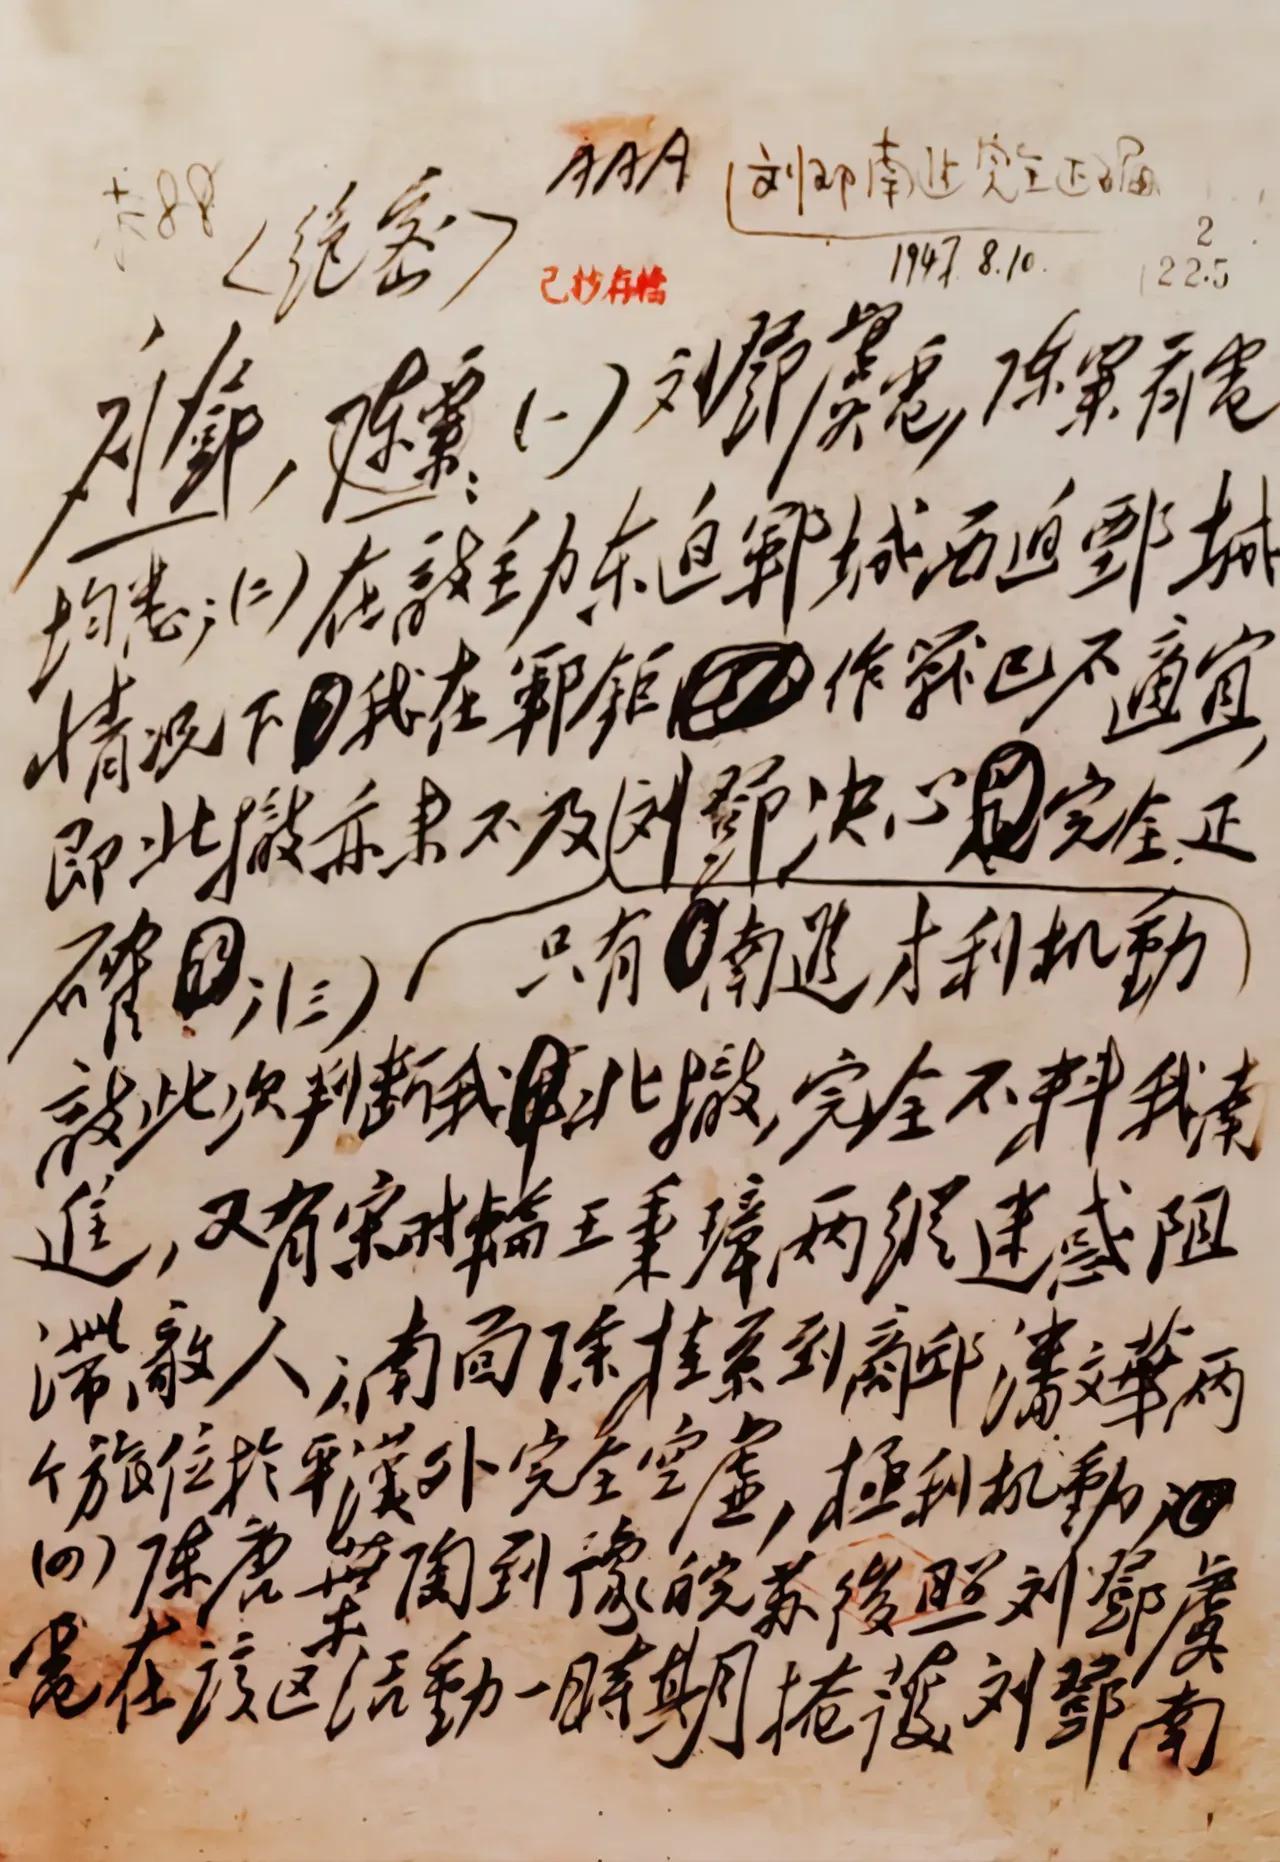 AAA
刘邓南进完全正确
〈绝密〉
1947.8.10.
2
22.5
已抄存档
刘鄧，陈粟：（一）刘鄧虞電，陈粟看電
均悉；（二）在敵主力东迫鄆城西迫鄄城
情况下我在鄆鉅作战已不適宜，
即北撤亦来不及刘鄧决心完全正
確；（三）只有南進才利机動
敵此次判断我北撤，完全不料我南
進，又有宋时輪王秉璋两縱迷惑阻
滞敵人，南面除桂系到商邱潘文華两
个旅位於平漢外完全空虚，極利机動
（四）陈唐葉陶到豫皖苏後照刘鄧虞
電在该区活動一時期掩護刘鄧南